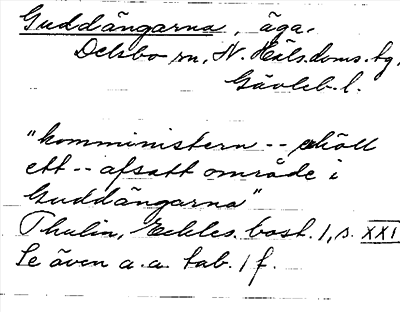 Guddängarna, äga.
Delsbo sn, N. Häls.doms.tg,
Gävleb.l.
"komministern -- erhöll
ett -- afsatt område i
Guddängarna"
Thulin, Eckles.bost. 1, s. XXI
Se även a.a. tab. 1 f.